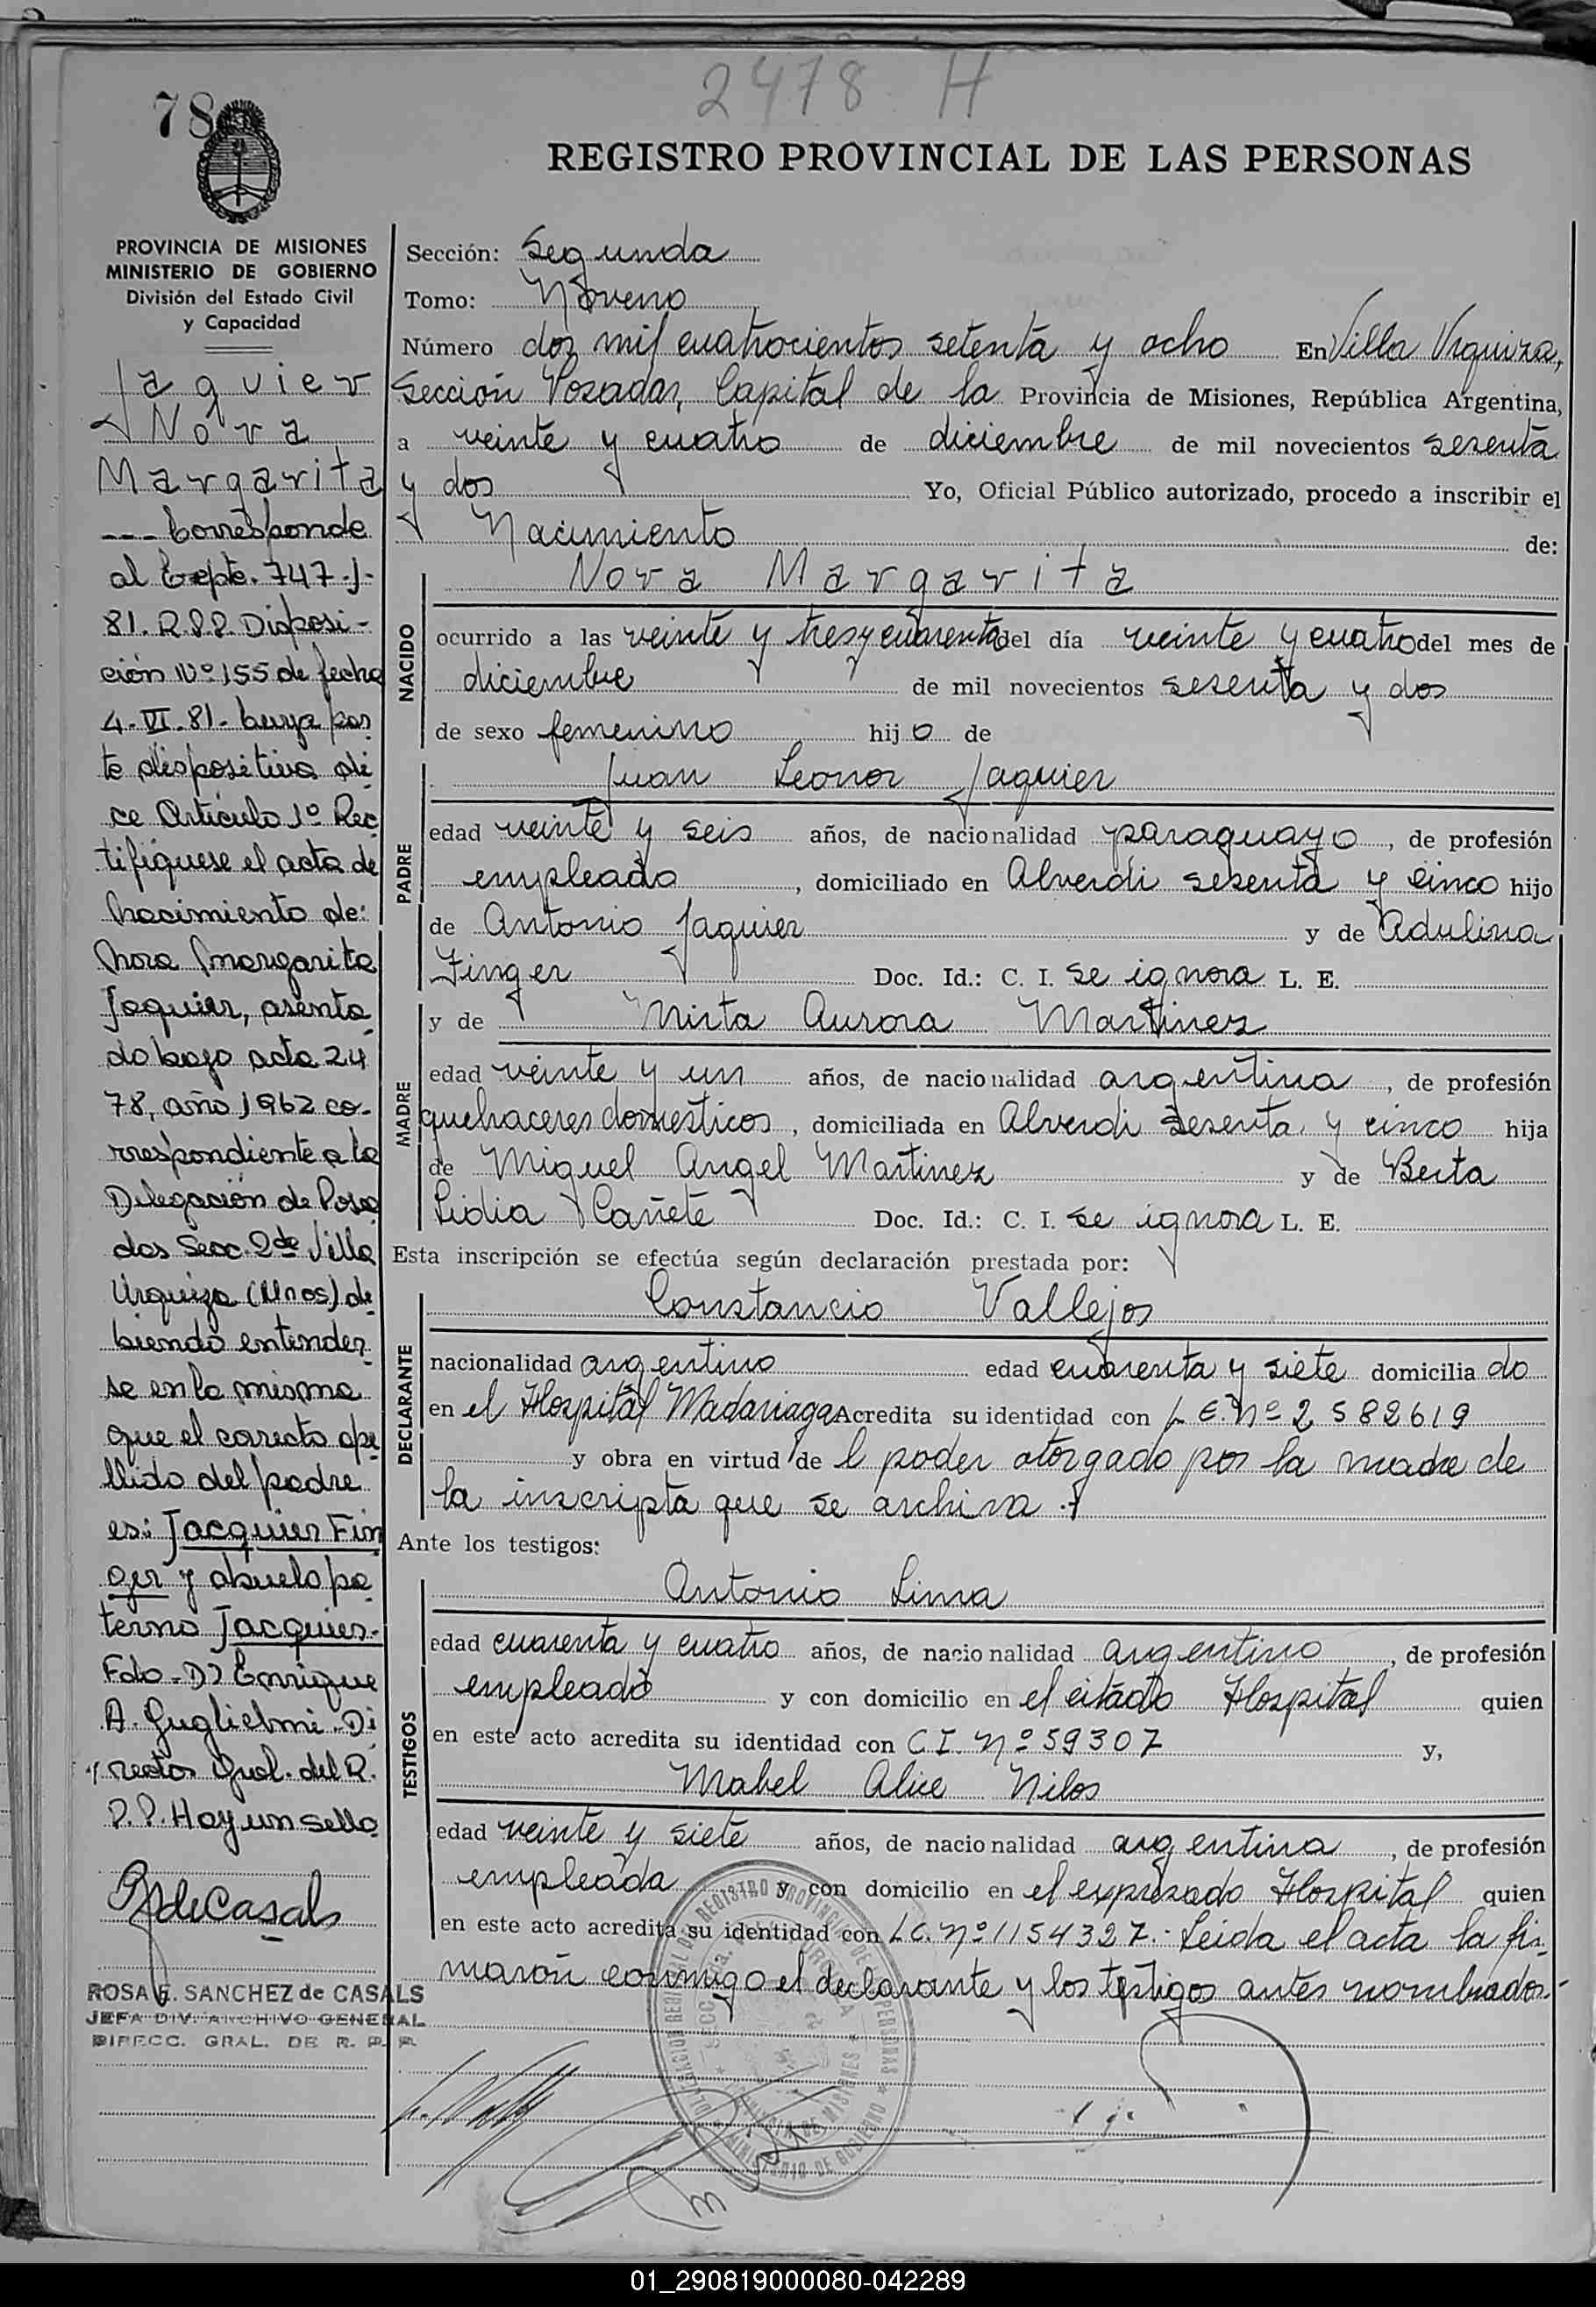 2478 H
78
REGISTRO PROVINCIAL DE LAS PERSONAS
PROVINCIA DE MISIONES
MINISTERIO DE GOBIERNO
División del Estado Civil
y Capacidad
Jaquier
Nora
Margarita
--- Corresponde
al Expte. 747-J-
81. R.P.P. Disposi-
ción Nº 155 de fecha
4-VI-81- cuya par
te dispositiva di
ce Artículo 1º Rec
tifíquese el acta de
nacimiento de:
Nora Margarita
Jaquier, asenta
do bajo acta 24
78, año 1962 co-
rrespondiente a la
Delegación de Posa
das Secc. 2da Villa
Urquiza (Mnes) de
biendo entender
se en la misma
que el correcto ape
llido del padre
es: Jacquier Fin
ger y abuelo pa
terno Jacquier-
Fdo-D) Enrique
A. Guglielmi-Di
rector Gral. del R.
P.P. Hay un sello
RdeCasals
ROSA E. SANCHEZ de CASALS
JEFA DIV. ARCHIVO GENERAL
DIRECC. GRAL. DE R. P. P.
Sección: Segunda
Tomo: Noveno
Número dos mil cuatrocientos setenta y ocho En Villa Urquiza,
Sección Posadas, Capital de la Provincia de Misiones, República Argentina,
a veinte y cuatro de diciembre de mil novecientos sesenta
y dos Yo, Oficial Público autorizado, procedo a inscribir el
Nacimiento de:
NACIDO
Nora Margarita
ocurrido a las veinte y tres y cuarenta del día veinte y cuatro del mes de
diciembre de mil novecientos sesenta y dos
de sexo femenino hij o de
PADRE
Juan Leonor Jaquier
edad veinte y seis años, de nacionalidad paraguayo, de profesión
empleado, domiciliado en Alverdi sesenta y cinco hijo
de Antonio Jaquier y de Adulina
Finger Doc. Id.: C. I. se ignora L. E.
MADRE
y de Mirta Aurora Martinez
edad veinte y un años, de nacionalidad argentina, de profesión
quehaceres domesticos, domiciliada en Alverdi sesenta y cinco hija
de Miguel Angel Martinez y de Berta
Lidia Cañete Doc. Id.: C. I. se ignora L. E.
Esta inscripción se efectúa según declaración prestada por:
DECLARANTE
Constancio Vallejos
nacionalidad argentino edad cuarenta y siete domicilia do
en el Hospital Madariaga Acredita su identidad con L.E. Nº 2582619
y obra en virtud de l poder otorgado por la madre de
la inscripta que se archiva.
Ante los testigos:
TESTIGOS
Antonio Lima
edad cuarenta y cuatro años, de nacionalidad argentino, de profesión
empleado y con domicilio en el citado Hospital quien
en este acto acredita su identidad con C.I. Nº 59307 y,
Mabel Alice Nilos
edad veinte y siete años, de nacionalidad argentina, de profesión
empleada y con domicilio en el expresado Hospital quien
en este acto acredita su identidad con L.C. Nº 1154327.- Leida el acta la fir
maron conmigo el declarante y los testigos antes nombrados.-
01_290819000080-042289